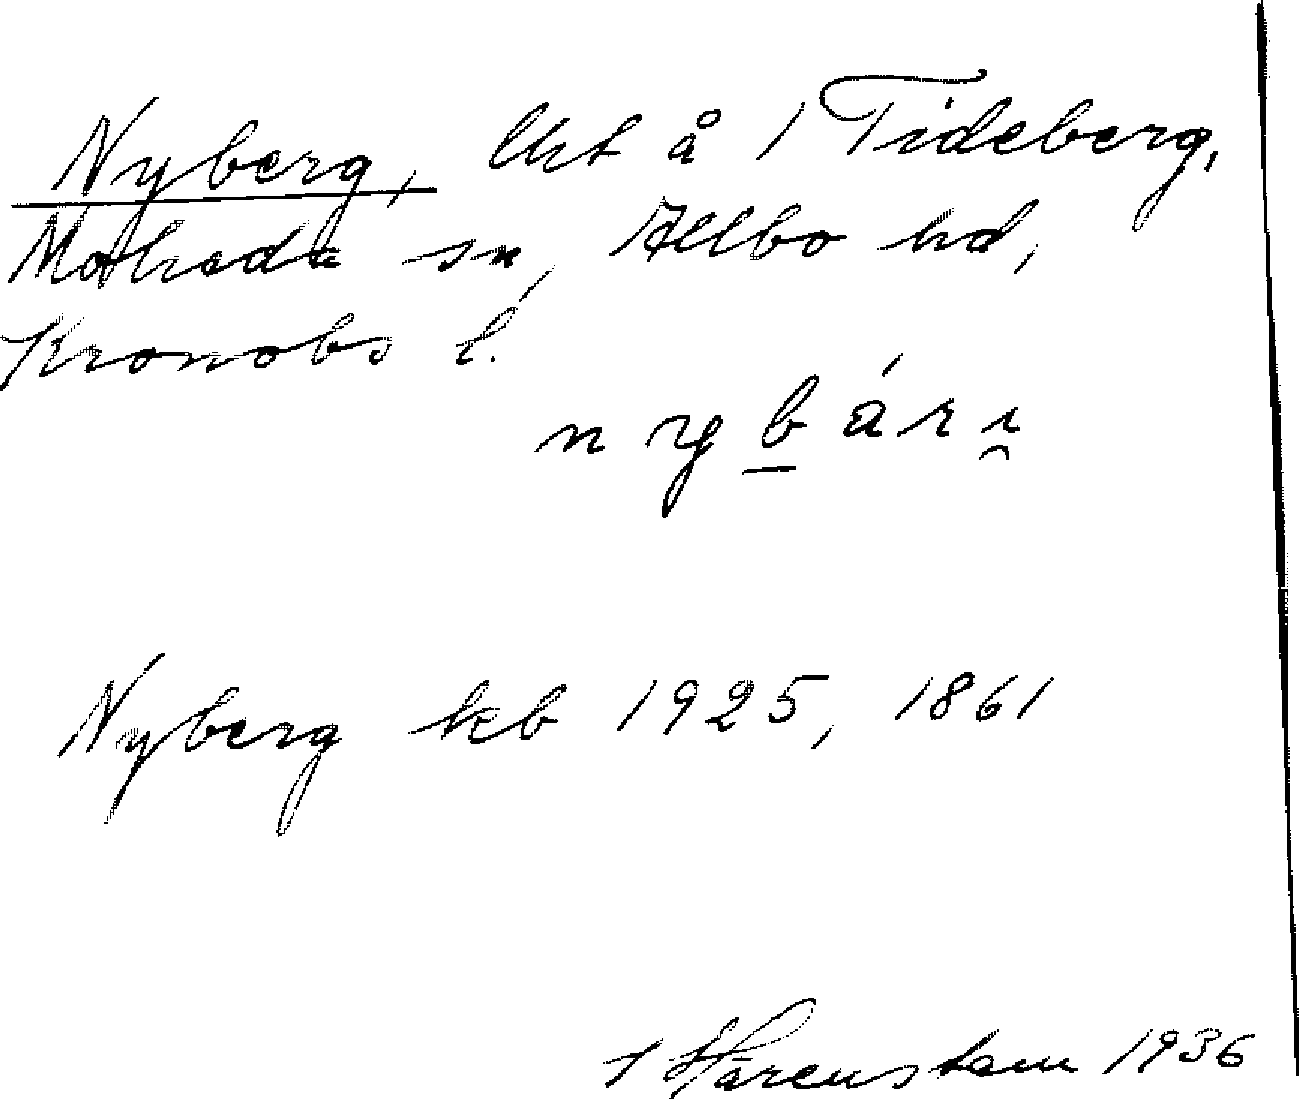 Nyberg, lht å 1 Tideberg,
Moheda sn, Allbo hd,
Kronobs l.
n y b á r ı̯
Nyberg kb 1925, 1861
Härenstam 1936